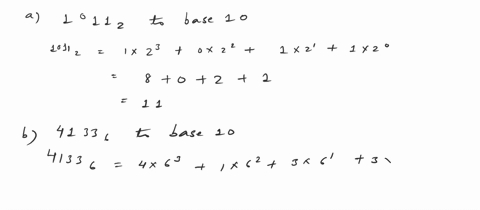 a) 1011₂ to base 10
1011₂ = 1 × 2³ + 0 × 2² + 1 × 2¹ + 1 × 2⁰
= 8 + 0 + 2 + 2
= 11
b) 4133₆ to base 10
4133₆ = 4 × 6³ + 1 × 6² + 3 × 6¹ + 3